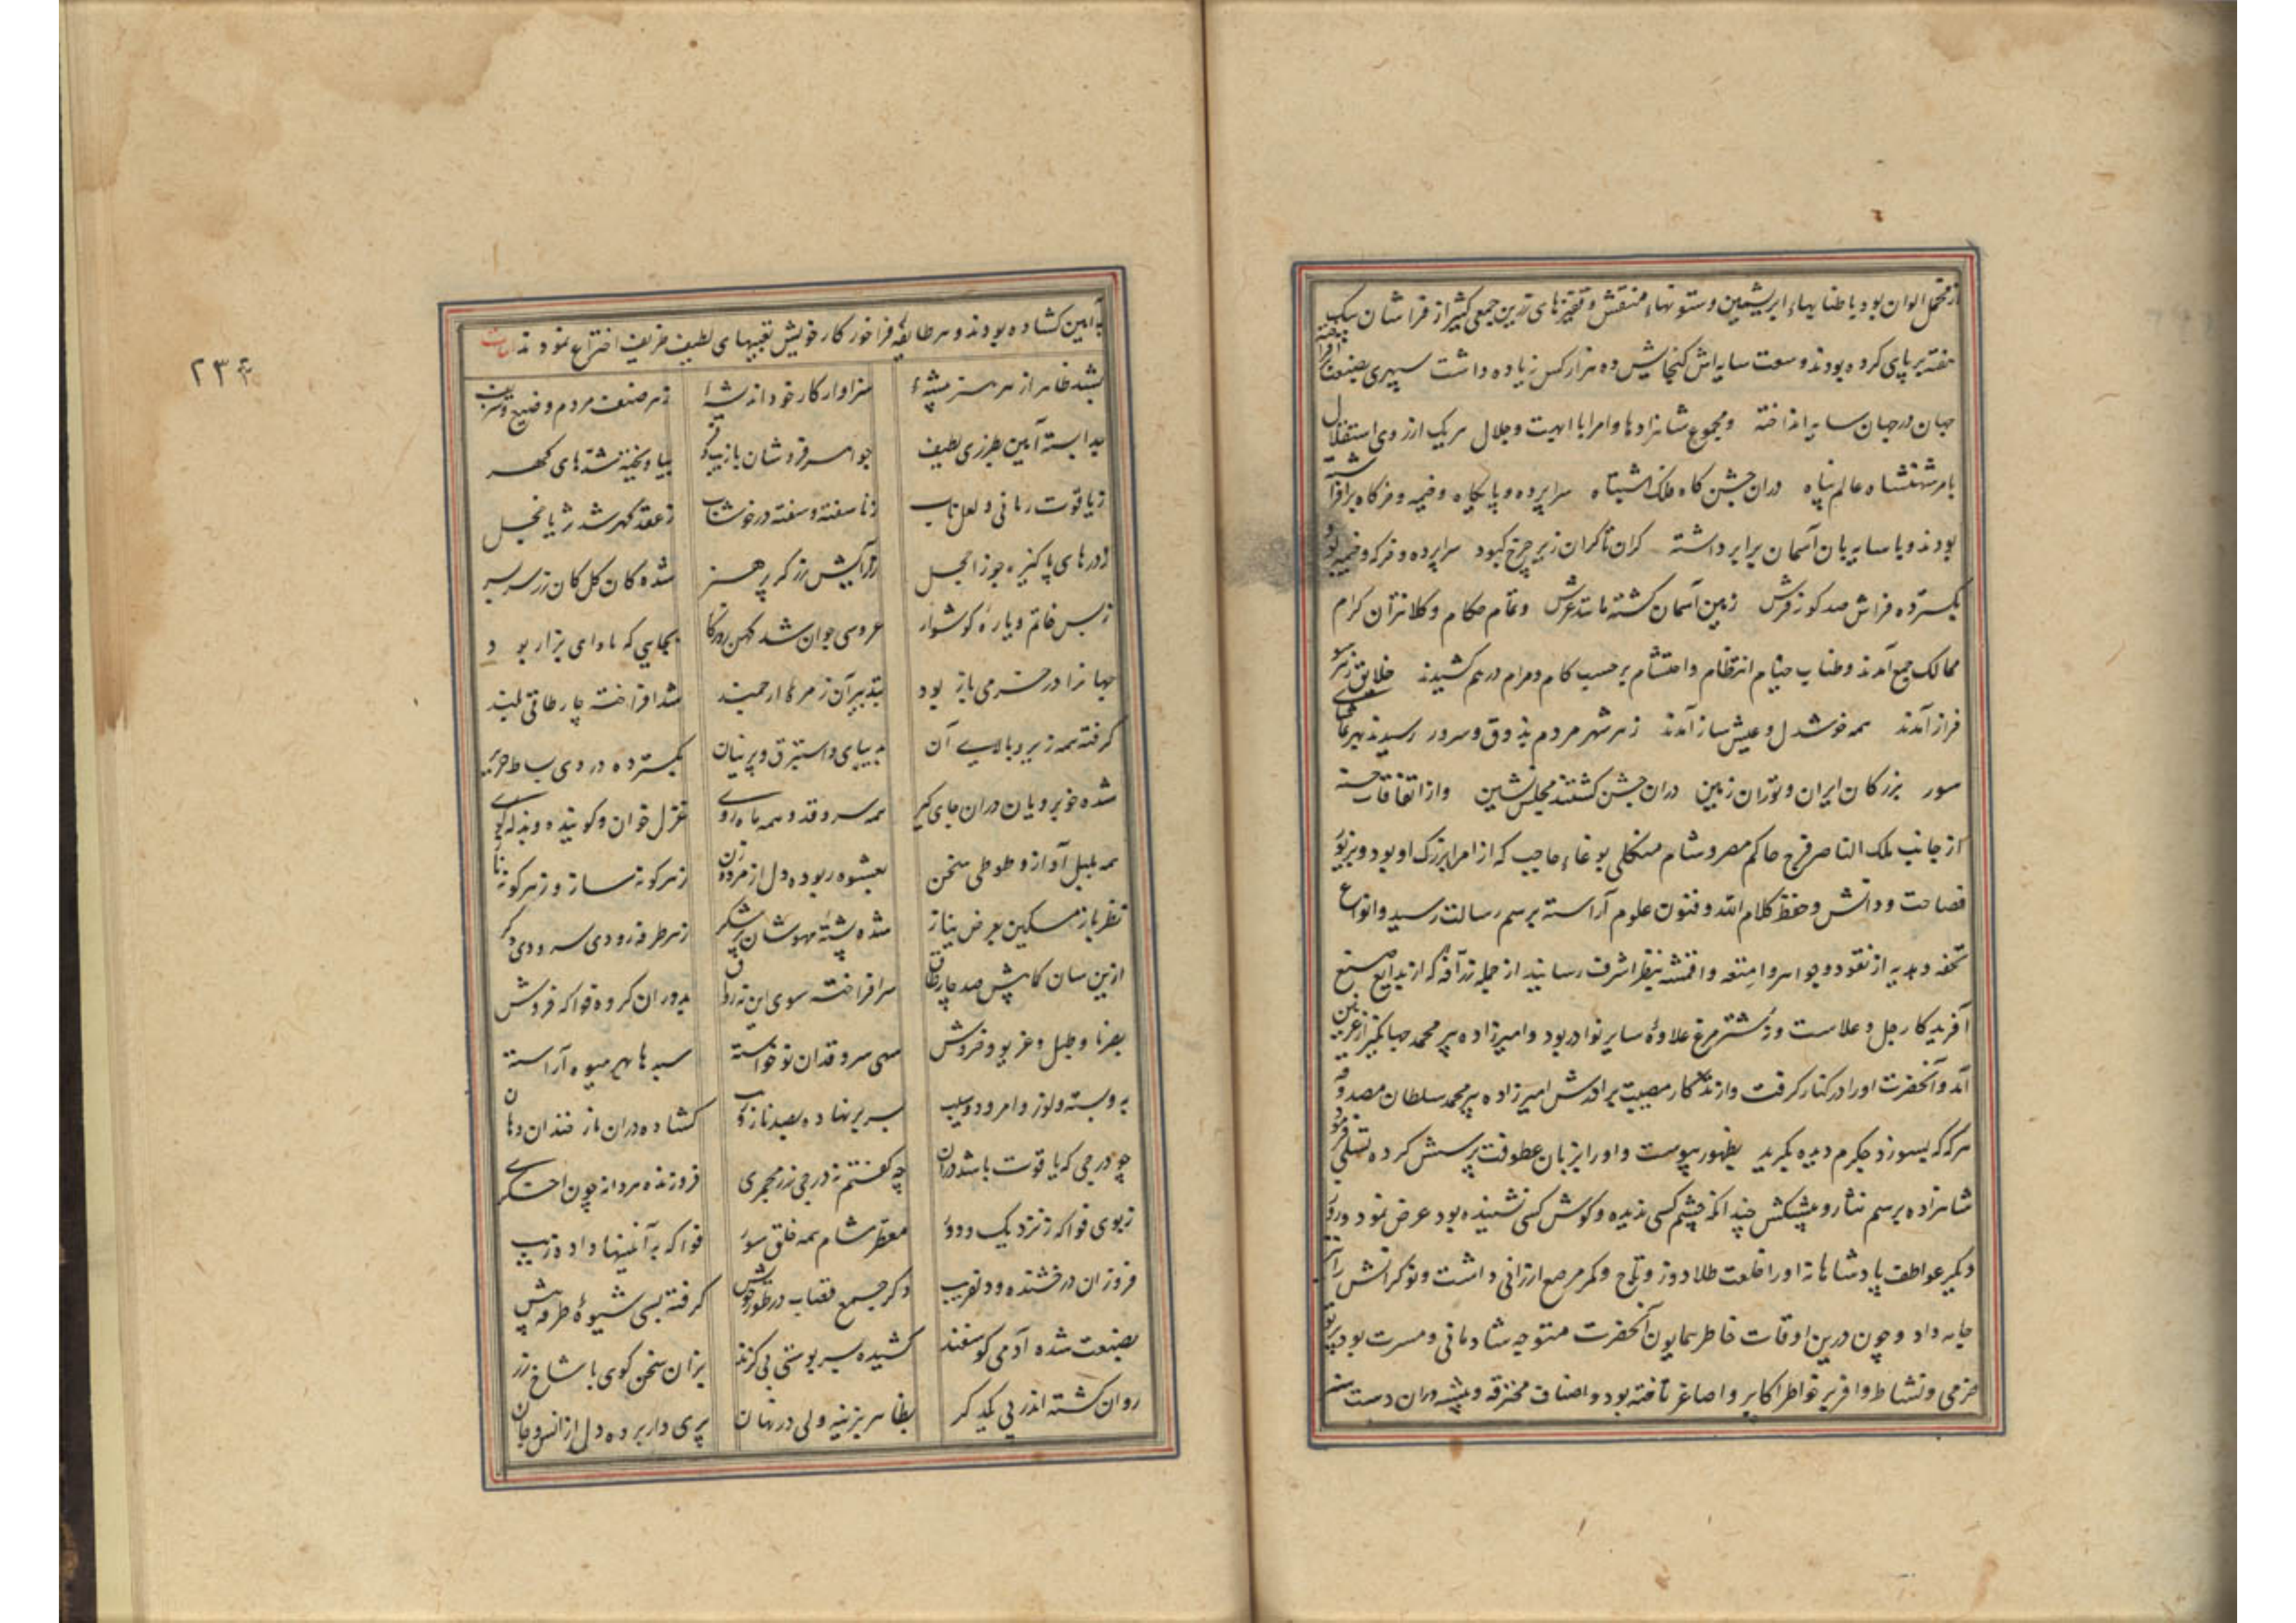 از مخمل الوان بود با طنابهاء ابریشمین و ستونهاء منقش و قپه‌های زرین جمعی کثیر از فراشان بیک
هفته بر پای کرده بودند و وسعت سایه‌اش گنجایش ده هزار کس زیاده داشت سپهری بصنعت برافراخته
جهان در جهان سایه انداخته و مجموع شاهزادها و امرا با ابهت و جلال هریک از روی استقلال
بامر شهنشاه عالم پناه دران جشن کاه ملک اشتباه سراپرده و پایکاه و خیمه و خرکاه برافراشته
بودند و با سایه بان آسمان برابر داشته کران تا کران زیر چرخ کبود سراپرده و خرکه و خیمه بود
بکسترده فراش صد کونه فرش زمین آسمان کشته مانند عرش و تمام حکام و کلانتران کرام
ممالک جمع آمدند و طناب خیام انتظام و احتشام بر حسب کام و مرام درهم کشیدند خلایق ز هر سو
فراز آمدند همه خوشدل و عیش ساز آمدند ز هر شهر مردم بذوق و سرور رسیدند بهر تماشای
سور بزرکان ایران و توران زمین دران جشن کشتند مجلس نشین و از اتفاقات حسنه
از جانب ملک الناصر فرج حاکم مصر و شام منکلی بوغاء حاجب که از امراء بزرک او بود و بزیور
فصاحت و دانش و حفظ کلام الله و فنون علوم آراسته برسم رسالت رسید و انواع
تحفه و هدیه از نقود و جواهر و امتعه و اقمشه بنظر اشرف رسانید از جمله زرافه که از بدایع صنع
آفریدکار جل و علاست و نه شترمرغ علاوۀ سایر نوادر بود و امیرزاده پیر محمد جهانکیر از غزنین
آمد و آنحضرت او را در کنار کرفت و از تذکار مصیبت برادرش امیرزاده محمد سلطان مصدوقه
هر که که بسوزد جکرم دیده بکرید بظهور پیوست و او را بزبان عطوفت پرسش کرده تسلی فرمود
شاهزاده برسم نثار و پیشکش چندانکه چشم کسی ندیده و کوش کسی نشنیده بود عرض نمود و روز
دیکر عواطف پادشاهانه او را خلعت طلادوز و تاج و کمر مرصع ارزانی داشت و نوکرانش را نیز
جامه داد و چون درین اوقات خاطر همایون آنحضرت متوجه شادمانی و مسرت بود پرتو
خرمی و نشاط وافر بر خواطر اکابر و اصاغر تافته بود و اصناف محترفه و پیشه وران دست هنر
به آیین کشاده بودند و هر طایفۀ فراخور کار خویش تعبیهای لطیف ظریف اختراع نمودند ابیات
بشد ظاهر از هر هنر پیشۀ سزاوار کار خود اندیشۀ ز هر صنف مردم وضیع و شریف
جدا بسته آیین بطرزی لطیف جواهر فروشان بازیب و فر بیاویخته رشتهای کهر
ز یاقوت رمانی و لعل ناب ز ناسفته و سفته در خوشاب ز عقد کهر شد ثریا خجل
ز درهای پاکیزه جوزا خجل ز آرایش زرکر پر هنر شده کان کل کان زر سر بسر
ز بس خاتم و یاره و کوشوار عروسی جوان شد کهن روزکار بجایی که ماوای بزاز بود
جهانرا در خرمی باز بود بتدبیر آن زمرۀ ارجمند شد افراخته چارطاقی بلند
کرفته همه زیر و بالای آن بدیبای و استبرق و پرنیان بکسترده در وی بساط حریر
شده خوبرویان دران جای کیر همه سروقد و همه ماه روی غزل خوان و کوینده و بذله کوی
همه بلبل آواز و طوطی سخن بعشوه ربوده دل از مرد و زن ز هر کونه ساز و ز هر کونه نا
نظرباز مسکین بعرض نیاز شده پشتۀ مهوشان پر شکر ز هر طرف رودی سرودی دکر
ازین سان کمابیش صد چارطاق سرافراخته سوی این نه رواق بدوران کروه فواکه فروش
بصرنا و طبل و غریو و خروش سهی سروقدان نوخاسته سبدها بهر میوه آراسته
به و پسته و لوز و امرود و سیب بسر بر نهاده بصد ناز کشاده دران نار خندان دهان
چو درجی که یاقوت باشد دران چه کفتم نه درجی زر مجمری فروزنده هر دانه چون اخکری
ز بوی فواکه ز نزدیک و دور معطر مشام همه خلق سور فواکه به آیینها داده زیب
فروزان درخشنده و دلفریب دکر جمع قصاب در طور خویش کرفته بسی شیوۀ طرفه پیش
بصنعت شده آدمی کوسفند کشیده بسر پوستی بی کزند بزان سخن کوی با شاخ زر
روان کشته اندر پی یکدکر بظاهر بزینه ولی در نهان پری وار برده دل از انس و جان
۲۳۴